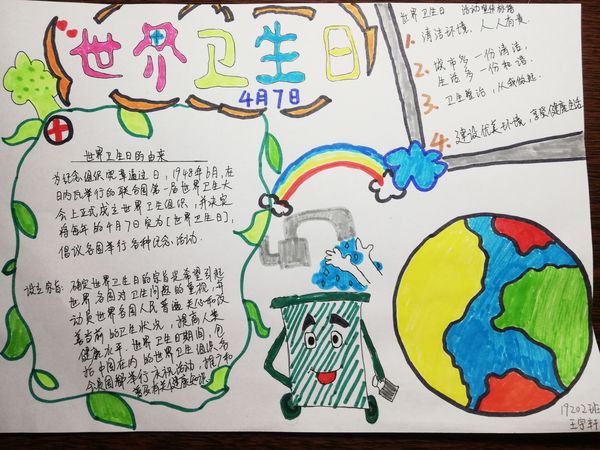 世界卫生日
4月7日
世界卫生日的由来
为纪念组织宪章通过日，1948年6月，在
日内瓦举行的联合国第一届世界卫生大
会上正式成立世界卫生组织，并决定
将每年的4月7日定为[世界卫生日]，
倡议各国举行各种纪念活动．
设立宗旨：确定世界卫生日的宗旨是希望引起
世界各国对卫生问题的重视，并
动员世界各国人民普遍关心和改
善当前的卫生状况，提高人类
健康水平．世界卫生日期间，包
括中国在内的世界卫生组织各
会员国都举行庆祝活动，推广和
普及有关健康知识．
世界卫生日 活动宣传标语
1. 清洁环境、人人有责
2. 城市多一份清洁，
生活多一份和谐．
3. 卫生整洁，从我做起
4. 建设优美环境，享受健康生活
19202班
王宇轩